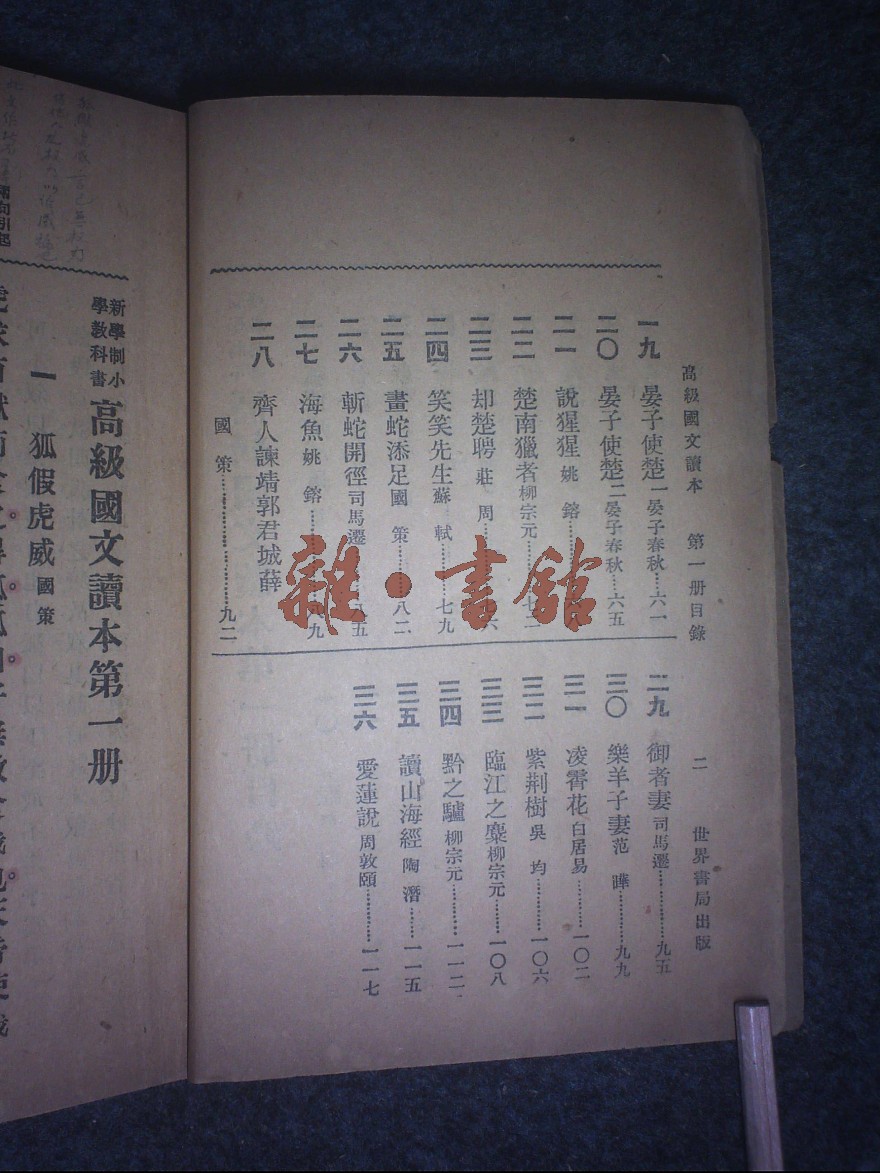 高級國文讀本　第一册目錄　二　世界書局出版
一九　晏子使楚一　晏子春秋……六一
二〇　晏子使楚二　晏子春秋……六五
二一　說猩猩　姚鎔
二二　楚南獵者　柳宗元……七二
二三　却楚聘　莊周
二四　笑笑先生　蘇軾……七九
二五　畫蛇添足　國策……八二
二六　斬蛇開徑　司馬遷
二七　海魚　姚鎔
二八　齊人諫靖郭君城薛
國策……九二
二九　御者妻　司馬遷……九五
三〇　樂羊子妻　范曄……九九
三一　凌霄花　白居易……一〇二
三二　紫荆樹　吳均……一〇六
三三　臨江之麋　柳宗元……一〇八
三四　黔之驢　柳宗元……一一二
三五　讀山海經　陶潛……一一五
三六　愛蓮說　周敦頤……一一七
雜·書館
新學制小學教科書　高級國文讀本第一册
一　狐假虎威　國策